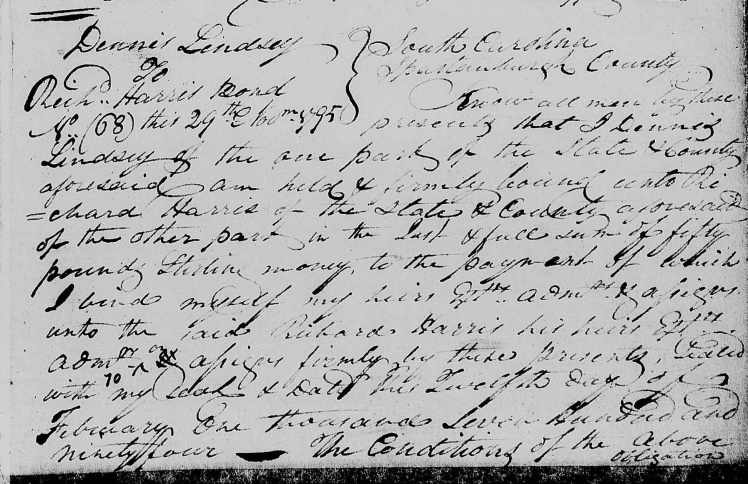 Dennis Lindsey
To
Richd. Harris Bond
No. (68) this 29th 1795
South Carolina
Spartanburgh County
Know all men by these
presents that I Dennis
Lindsey of the one part of the State & County
aforesaid am held & firmly bound unto Ri
=chard Harris of the State & County aforesaid
of the other part in the Just & full sum of fifty
pounds Sterling money, to the payment of which
I bind myself my heirs Exrs. admrs. & assigns
unto the said Richard Harris his heirs Exrs.
admrs or assigns firmly by these Presents, Sealed
with my seal & Dated this Twelfth day of
February One thousand Seven Hundred and
ninety four — The Conditions of the above
obligation